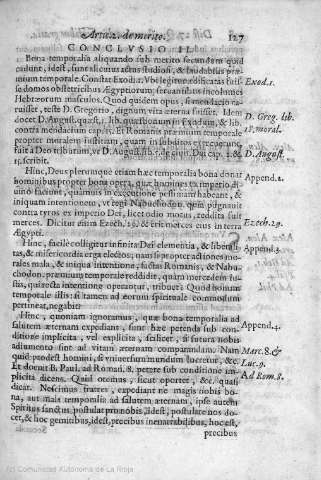 Artic.2. de merito. 127
CONCLVSIO II.
Bona temporalia aliquando sub merito secundum quid
cadunt, idest, sunt alicuius actus studiosi, & laudabilis præ-
mium temporale. Constat Exod.1. Vbi legitur ædificatas fuis-
se domos obstetricibus Ægyptiorum, servantibus incolumes
Exod.1.
Hebræorum masculos. Quod quidem opus, si mendacio ca-
ruisset, teste D. Gregorio, dignum vita æterna fuisset. Idem
D. Greg. lib.
docet D. August. quæst.1. lib. quæstionum in Exodum, & lib.
18. moral.
contra mendacium cap.15. Et Romanis præmium temporale
propter moralem iustitiam, quam in subditos exercebant
fuit à Deo tributum, vt D. August. lib.5. de civit. Dei cap.12. &
D. August.
15. scribit.
Hinc, Deus plerunque etiam hæc temporalia bona donat
Append.2.
hominibus propter bona opera, quæ
divino faciunt, quamuis in executione pessimam habeant, &
iniquam intentionem, vt regi Nabuchodon. quem pugnauit
contra tyros ex imperio Dei, licet odio motus, reddita fuit
merces. Dicitur enim Ezech.29. & erit merces eius in terra
Ezech.29.
Ægypti.
Hinc, facile colligitur infinita Dei clementia, & liberali-
tas, & misericordia erga electos; nam si propter actiones mo-
Append.3.
rales mala, & iniqua intentione, factas Romanis, & Nabu-
chodon. præmium temporale reddidit, quam mercedem fu-
stis, qui recta intentione operantur, tribuet? Quod bonum
temporale illis si tamen ad eorum spirituale commodum
pertineat, negabit?
Hinc, quoniam ignoramus, quæ bona temporalia ad
salutem æternam expediant, sunt hæc petenda sub con-
Append.4.
ditione implicita, vel explicita, scilicet, si futura nobis
adiumento sint ad vitam æternam comparandam. Nam
quid prodest homini, & universum mundum lucretur, &c.
Marc.8. &
Et docuit B. Paul. ad Roman. 8. petere sub conditione im-
Luc.9.
plicita dicens. Quid oremus, sicut oportet, &c. quasi
Ad Rom.8.
dicat. Nescimus fratres, expediant ne magis nobis bo-
na, aut mala temporalia ad salutem æternam, ipse autem
Spiritus sanctus postulat pro nobis, idest, postulare nos do-
cet, & hoc gemitibus, idest, precibus inenarrabilibus, hoc est,
precibus
(c) Comunidad Autónoma de La Rioja